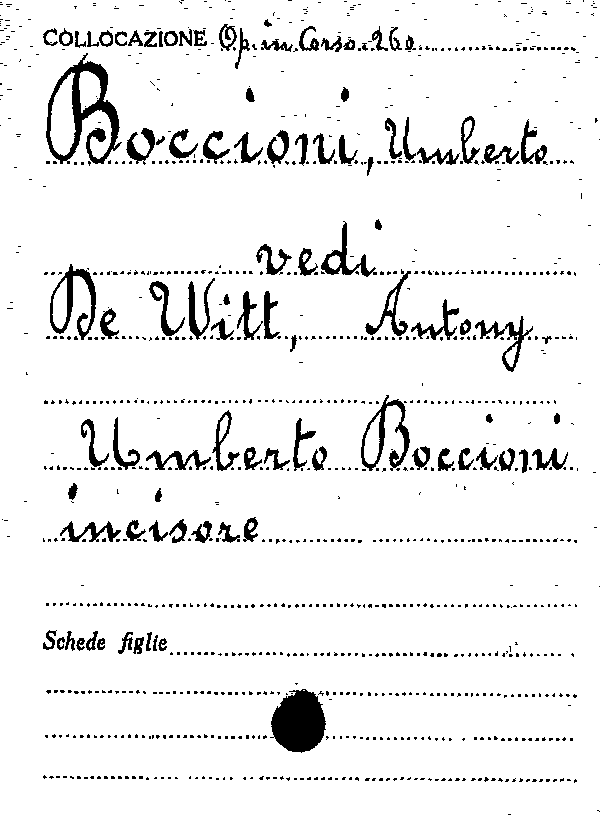 COLLOCAZIONE Op. in Corso. 260
Boccioni, Umberto
vedi
De Witt, Antony.
Umberto Boccioni
incisore
Schede figlie